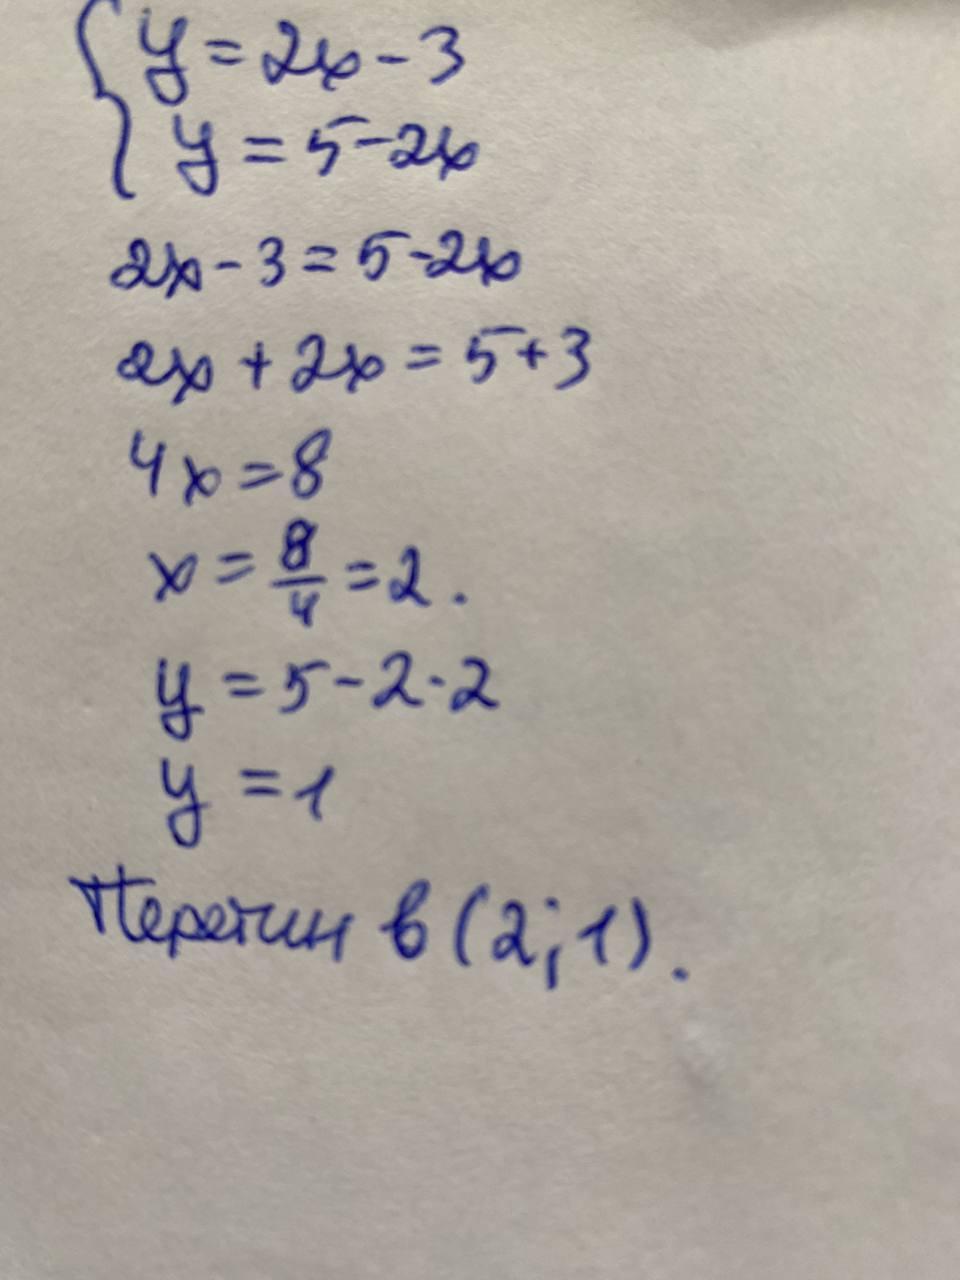 { y = 2x - 3
y = 5 - 2x
2x - 3 = 5 - 2x
2x + 2x = 5 + 3
4x = 8
x = 8/4 = 2.
y = 5 - 2 · 2
y = 1
Перетин в (2; 1).